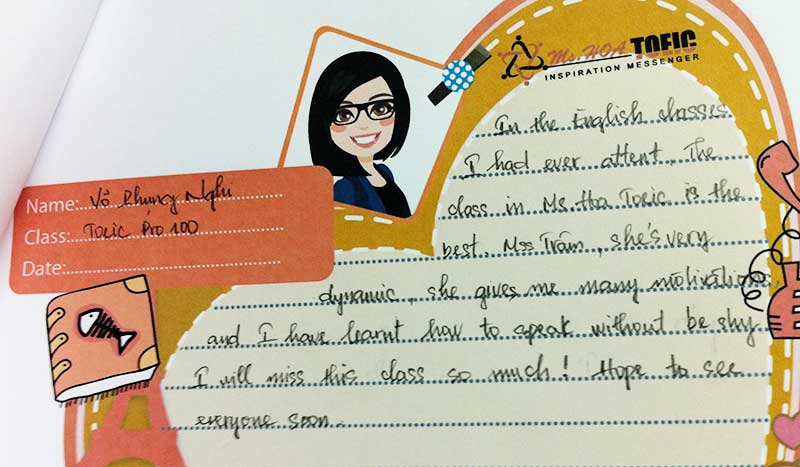 Ms. HOA TOEIC
INSPIRATION MESSENGER
Name: Võ Phụng Nghi
Class: Toeic Pro 100
Date:
In the English classes
I had ever attent. The
class in Ms. Hoa Toeic is the
best. Mss Trâm, she's very
dynamic, she gives me many motivations,
and I have learnt how to speak without be shy
I will miss this class so much! Hope to see
everyone soon..